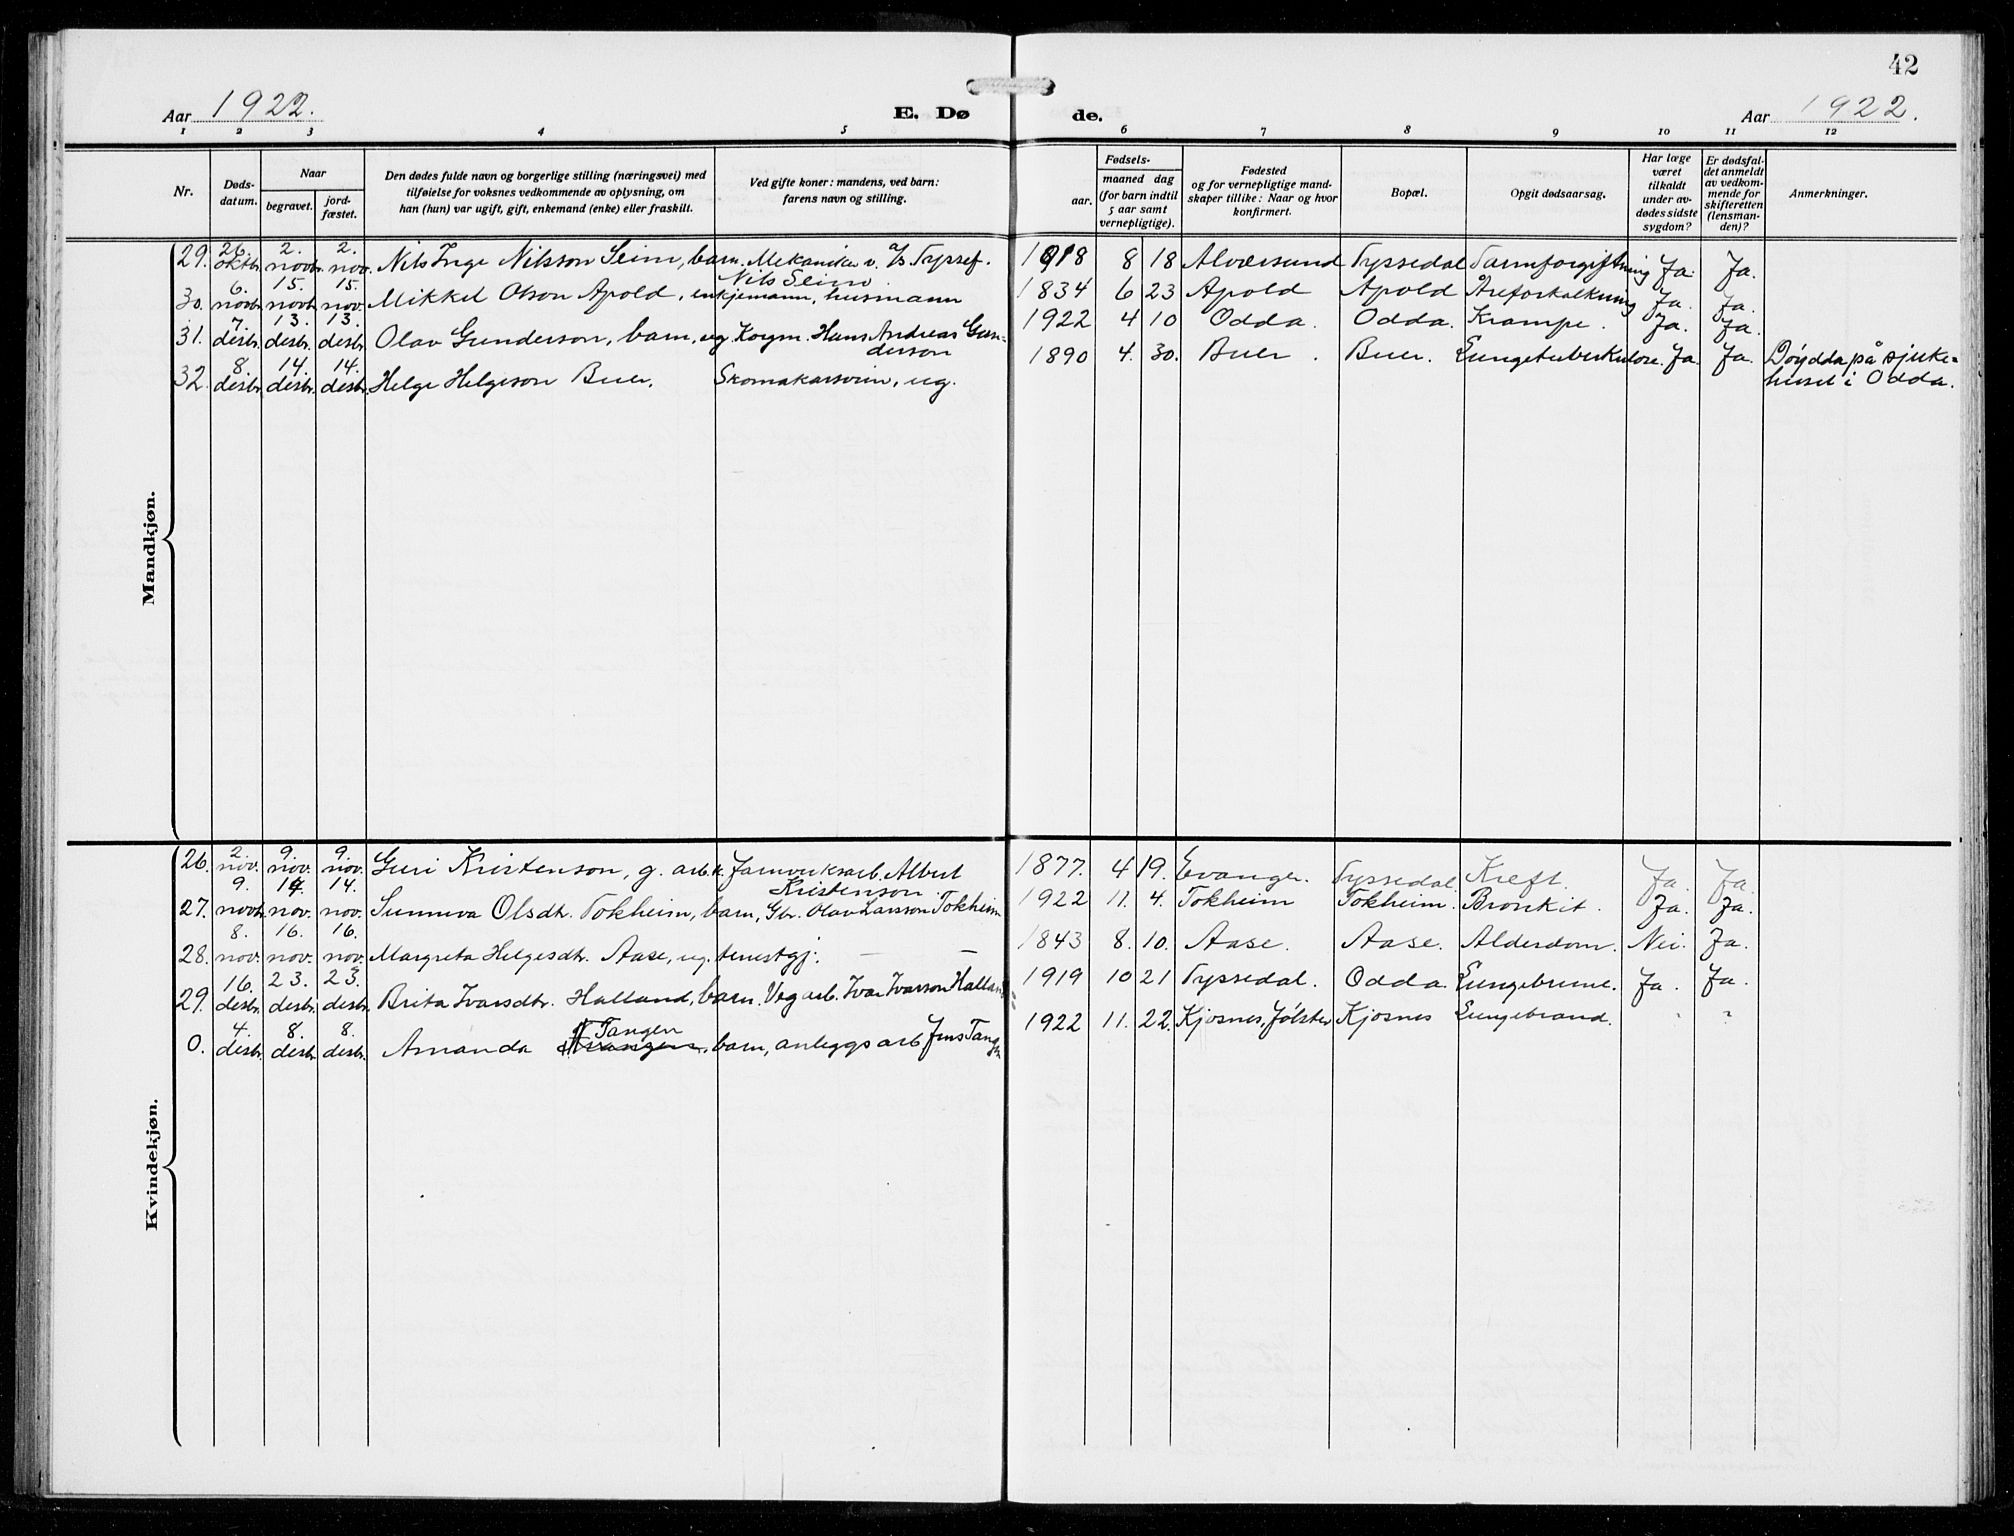 42
Aar 1922.
E. Dø
de.
Aar 1922.
1 2 3 4 5 6 7 8 9 10 11 12
Nr.
Døds-
datum.
Naar
begravet.
jord-
fæstet.
Den dødes fulde navn og borgerlige stilling (næringsvei) med
tilføielse for voksnes vedkommende av oplysning, om
han (hun) var ugift, gift, enkemand (enke) eller fraskilt.
Ved gifte koner: mandens, ved barn:
farens navn og stilling.
Fødsels-
aar.
maaned dag
(for barn indtil
5 aar samt
vernepligtige).
Fødested
og for vernepligtige mand-
skaper tillike: Naar og hvor
konfirmert.
Bopæl.
Opgit dødsaarsag.
Har læge
været
tilkaldt
under av-
dødes sidste
sygdom?
Er dødsfal-
det anmeldt
av vedkom-
mende for
skifteretten
(lensman-
den)?
Anmerkninger.
Mandkjøn.
29. 26. oktb. 2. novb. 2. nov. Nils Inge Nilsson Seim, barn. Mekaniker v. A/s Tyssef. Nils Seim. 1918 8 18 Alversund Tyssedal Tarmforgiftning Ja. Ja.
30. 6. novb. 15. novb. 15. nov. Mikkel Olson Apold, enkjemann, husmann 1834 6 23 Apold Apold Åreforkalkning Ja. Ja.
31. 7. desbr. 13. desbr. 13. desbr. Olav Gunderson, barn, ug Korgm. Hans Andreas Gunderson 1922 4 10 Odda. Odda. Krampe. Ja. Ja.
32. 8. desbr. 14. desbr. 14. desbr. Helge Helgeson Buer. Skomakarsvein, ug. 1890 4. 30. Buer. Buer. Lungetuberkulose. Ja. Ja. Døydde på sjuke=
huset i Odda.
Kvindekjøn.
26. 2. nov. 9. nov. 9. nov. Guri Kristenson, g. arb.k. Jarnverksarb. Albert Kristenson. 1877. 4 19. Evanger. Tyssedal. Kreft. Ja. Ja.
27. 9. novb. 14. nov. 14. nov. Sunniva Olsdt. Tokheim, barn, Gbr. Olav Larsson Tokheim 1922 11. 4. Tokheim Tokheim. Bronkit. Ja. Ja.
28. 8. nov. 16. nov. 16. nov. Margreta Helgesdt. Aase, ug. tenestgj. — — 1843 8. 10. Aase. Aase. Alderdom. Nei. Ja.
29. 16. desbr. 23. desbr. 23. desbr. Brita Ivarsdtr. Halland, barn. Vegarb. Ivar Ivarson Halland 1919 10 21 Tyssedal. Odda Lungebrune. Ja. Ja.
0. 4. desbr. 8. desbr. 8. desbr. Amanda Tangen, barn, anleggsarb Jens Tangen 1922 11. 22. Kjosnes, Jølster Kjosnes Lungebrand. " "